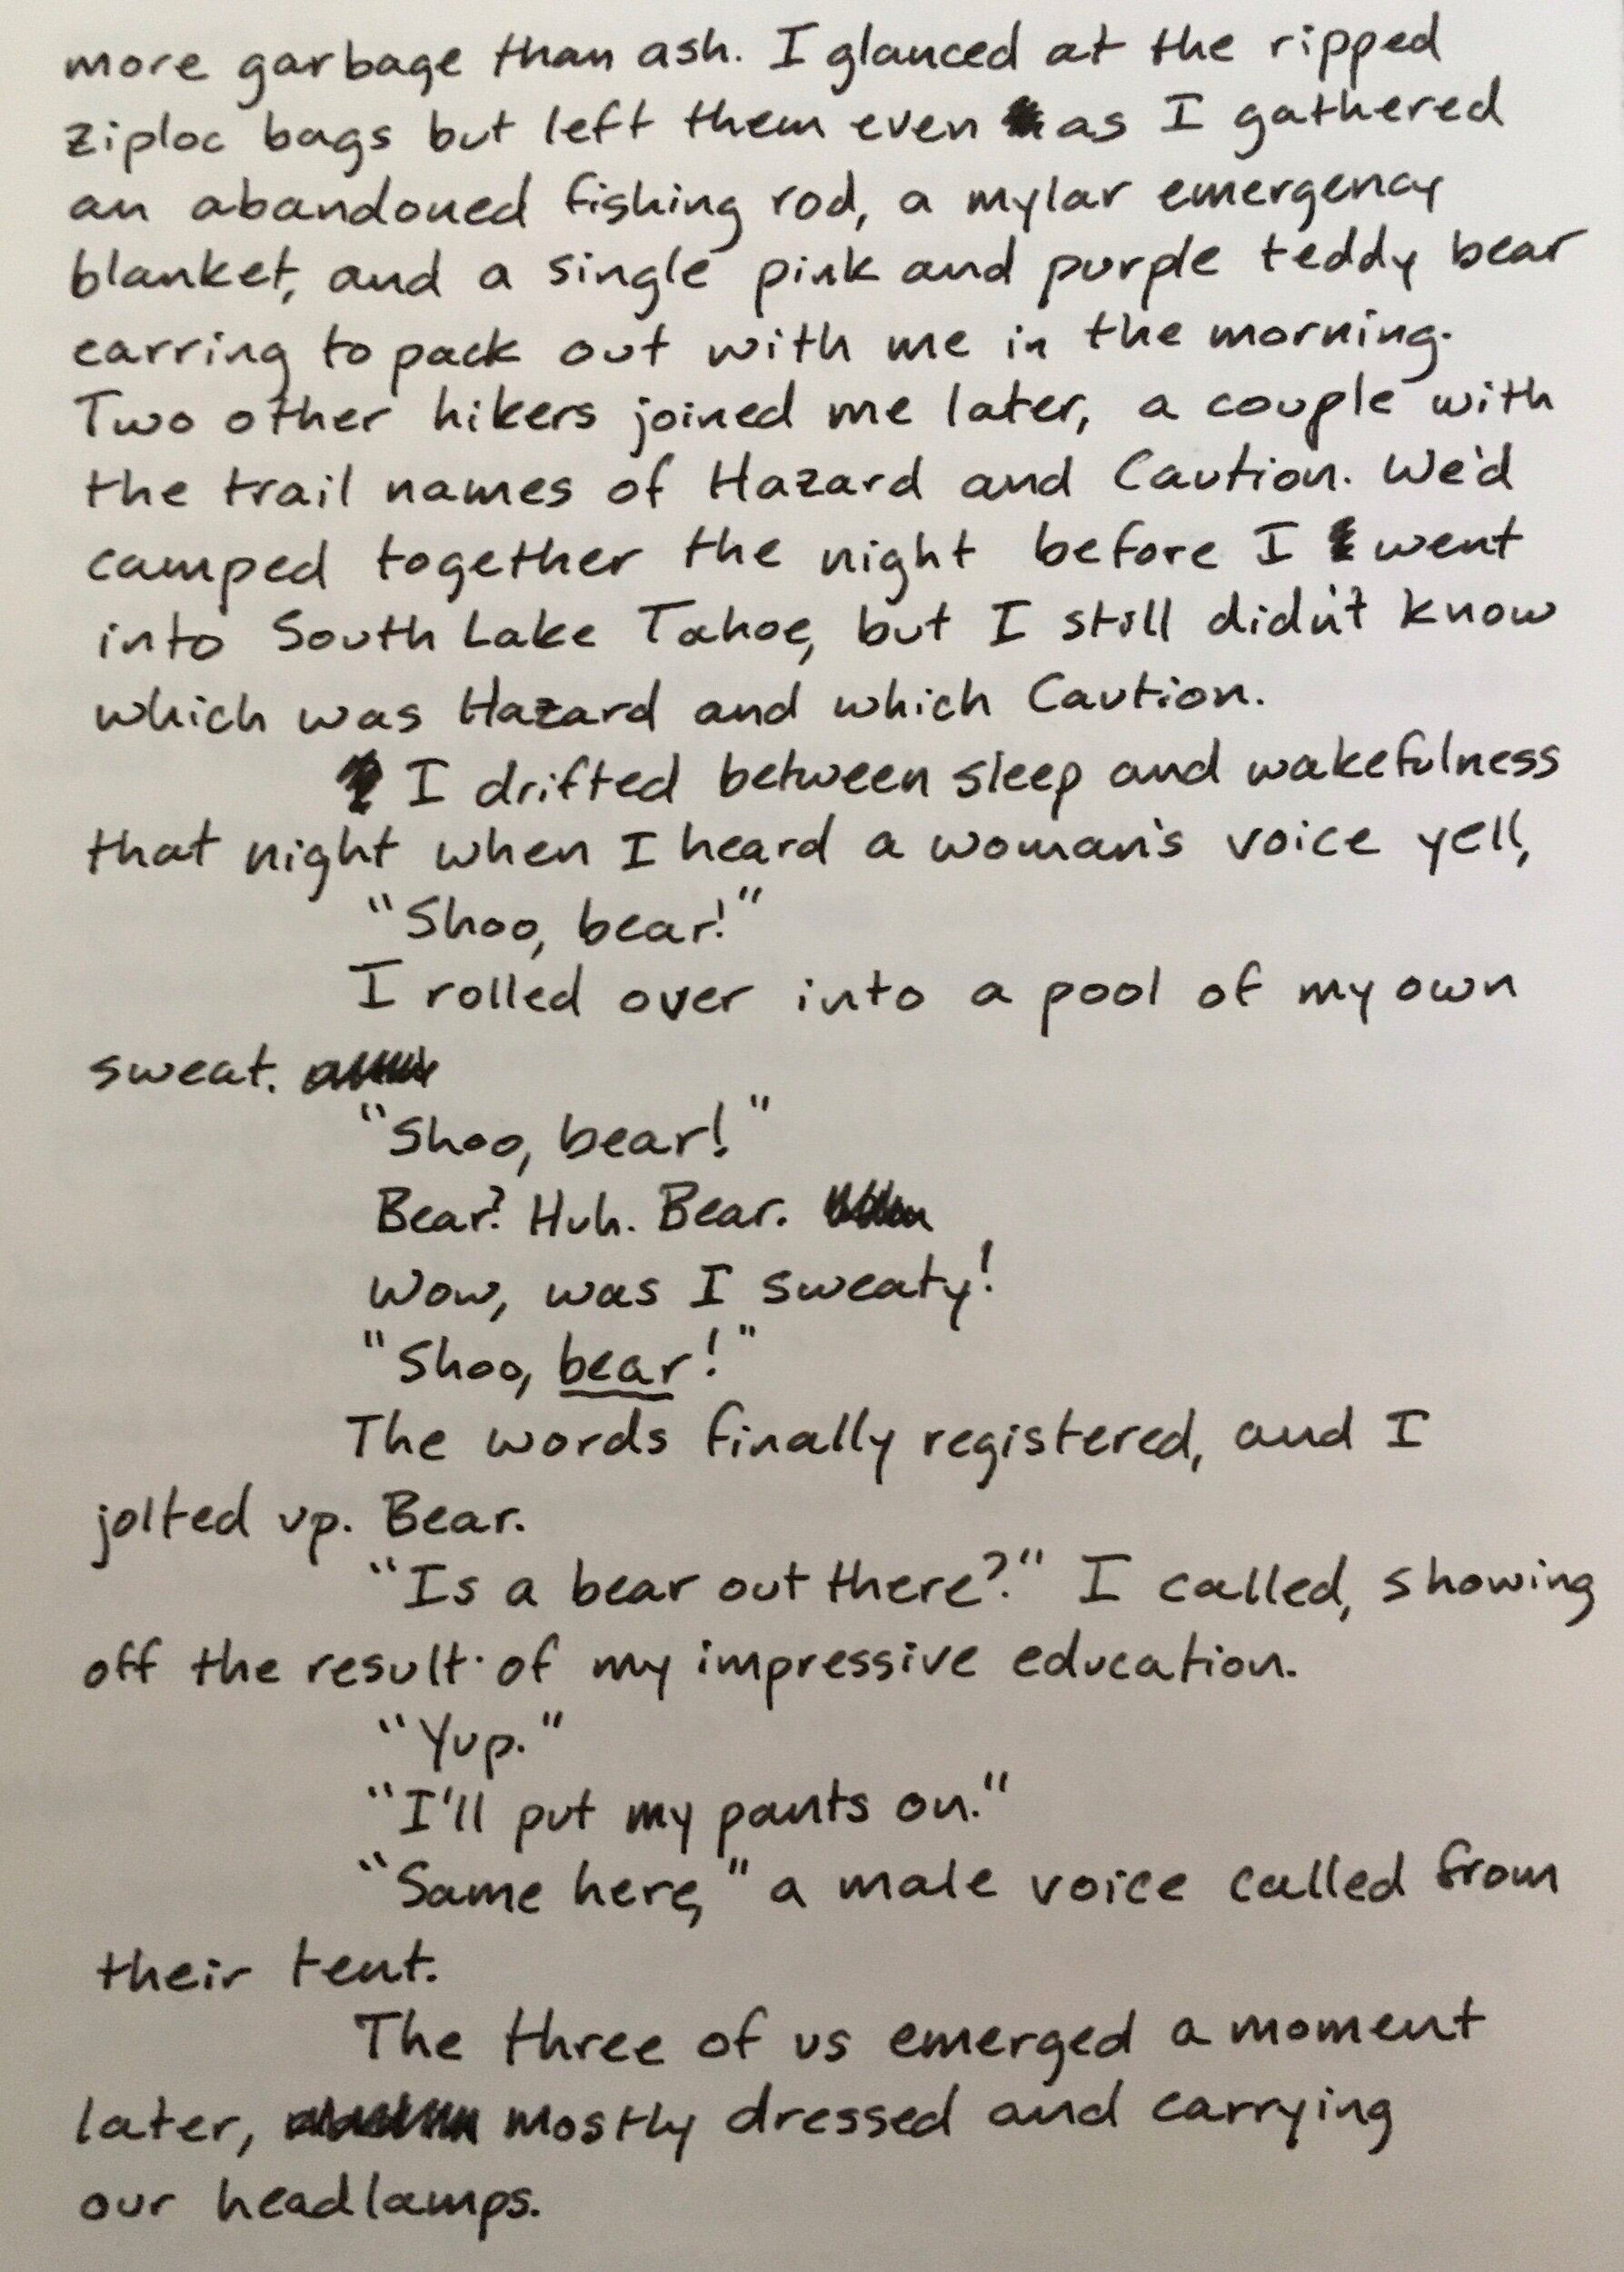 more garbage than ash. I glanced at the ripped
ziploc bags but left them even as I gathered
an abandoned fishing rod, a mylar emergency
blanket, and a single pink and purple teddy bear
earring to pack out with me in the morning.
Two other hikers joined me later, a couple with
the trail names of Hazard and Caution. We'd
camped together the night before I went
into South Lake Tahoe, but I still didn't know
which was Hazard and which Caution.
I drifted between sleep and wakefulness
that night when I heard a woman's voice yell,
"Shoo, bear!"
I rolled over into a pool of my own
sweat.
"Shoo, bear!"
Bear? Huh. Bear.
Wow, was I sweaty!
"Shoo, bear!"
The words finally registered, and I
jolted up. Bear.
"Is a bear out there?" I called, showing
off the result of my impressive education.
"Yup."
"I'll put my pants on."
"Same here," a male voice called from
their tent.
The three of us emerged a moment
later, mostly dressed and carrying
our headlamps.